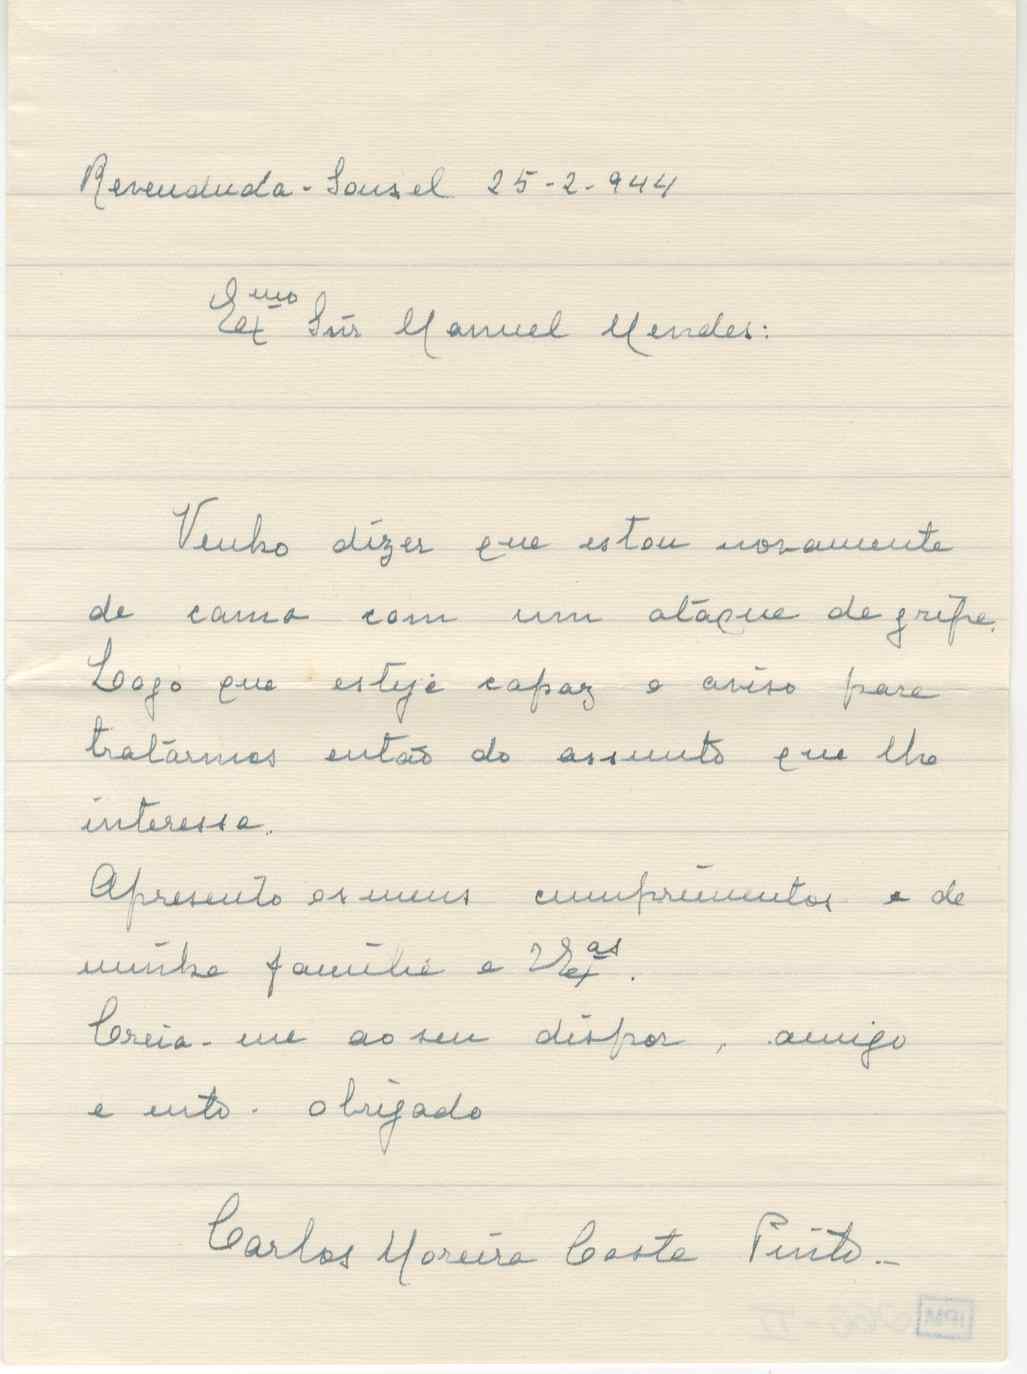 Revenduda - Sousel 25-2-944
Exmo Snr Manuel Mendes:
Venho dizer que estou novamente
de cama com um ataque de gripe.
Logo que esteje capaz o aviso para
tratármos então do assunto que lhe
interessa.
Apresento os meus cumprimentos e de
minha familia a VExas.
Creia-me ao seu dispor, amigo
e mto. obrigado
Carlos Moreira Costa Pinto.-
IPM